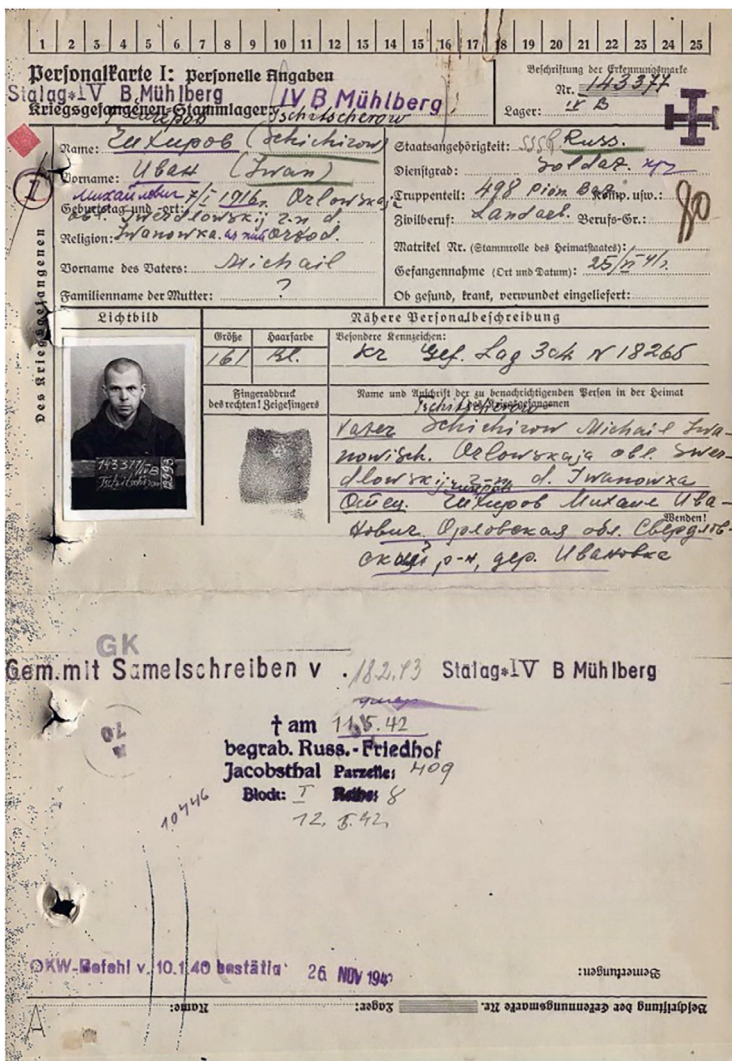 1 2 3 4 5 6 7 8 9 10 11 12 13 14 15 16 17 18 19 20 21 22 23 24 25
Personalkarte I: Personelle Angaben
Beschriftung der Erkennungsmarke
Nr. 143377
Stalag*IV B Mühlberg
Kriegsgefangenen-Stammlager: IV B Mühlberg
Lager: IV B
Tschitscherow
Des Kriegsgefangenen
Name: (Schichirow)
Vorname: Иван (Iwan)
Михайлович 7/I 1916 Orlowskaja
Geburtstag und -ort:
Religion: Iwanowka
Vorname des Vaters: Michail
Familienname der Mutter: ?
Staatsangehörigkeit: Russ.
Dienstgrad: Soldat
Truppenteil: 498 Pion. Bat. Komp. usw.:
80
Zivilberuf: Landarb. Berufs-Gr.:
Matrikel Nr. (Stammrolle des Heimatstaates):
Gefangennahme (Ort und Datum): 25/
Ob gesund, krank, verwundet eingeliefert:
Lichtbild
Nähere Personalbeschreibung
Größe Haarfarbe Besondere Kennzeichen:
161 Bl. Kr Gef. Lag N 18265
Fingerabdruck
des rechten! Zeigefingers
Name und Anschrift der zu benachrichtigenden Person in der Heimat
des Kriegsgefangenen
Tschitscherow
Vater Schichirow Michail Iwa-
nowisch. Orlowskaja obl. Swer-
dlowskij d. Iwanowka
Отец Михаил Ива-
нович. Орловская обл. Свердлов-
Wenden!
ский р-н, дер. Ивановка
143377 IVB
GK
Gem.mit Samelschreiben v. 18.2.43 Stalag*IV B Mühlberg
† am 11.5.42
begrab. Russ.-Friedhof
Jacobsthal Parzelle: 409
Block: I Reihe: 8
12.5.42
10446
OKW-Befehl v. 10.1.40 bestätig 26 NOV 194
Bemerkungen:
Name: Lager: Beschriftung der Erkennungsmarke Nr.
A